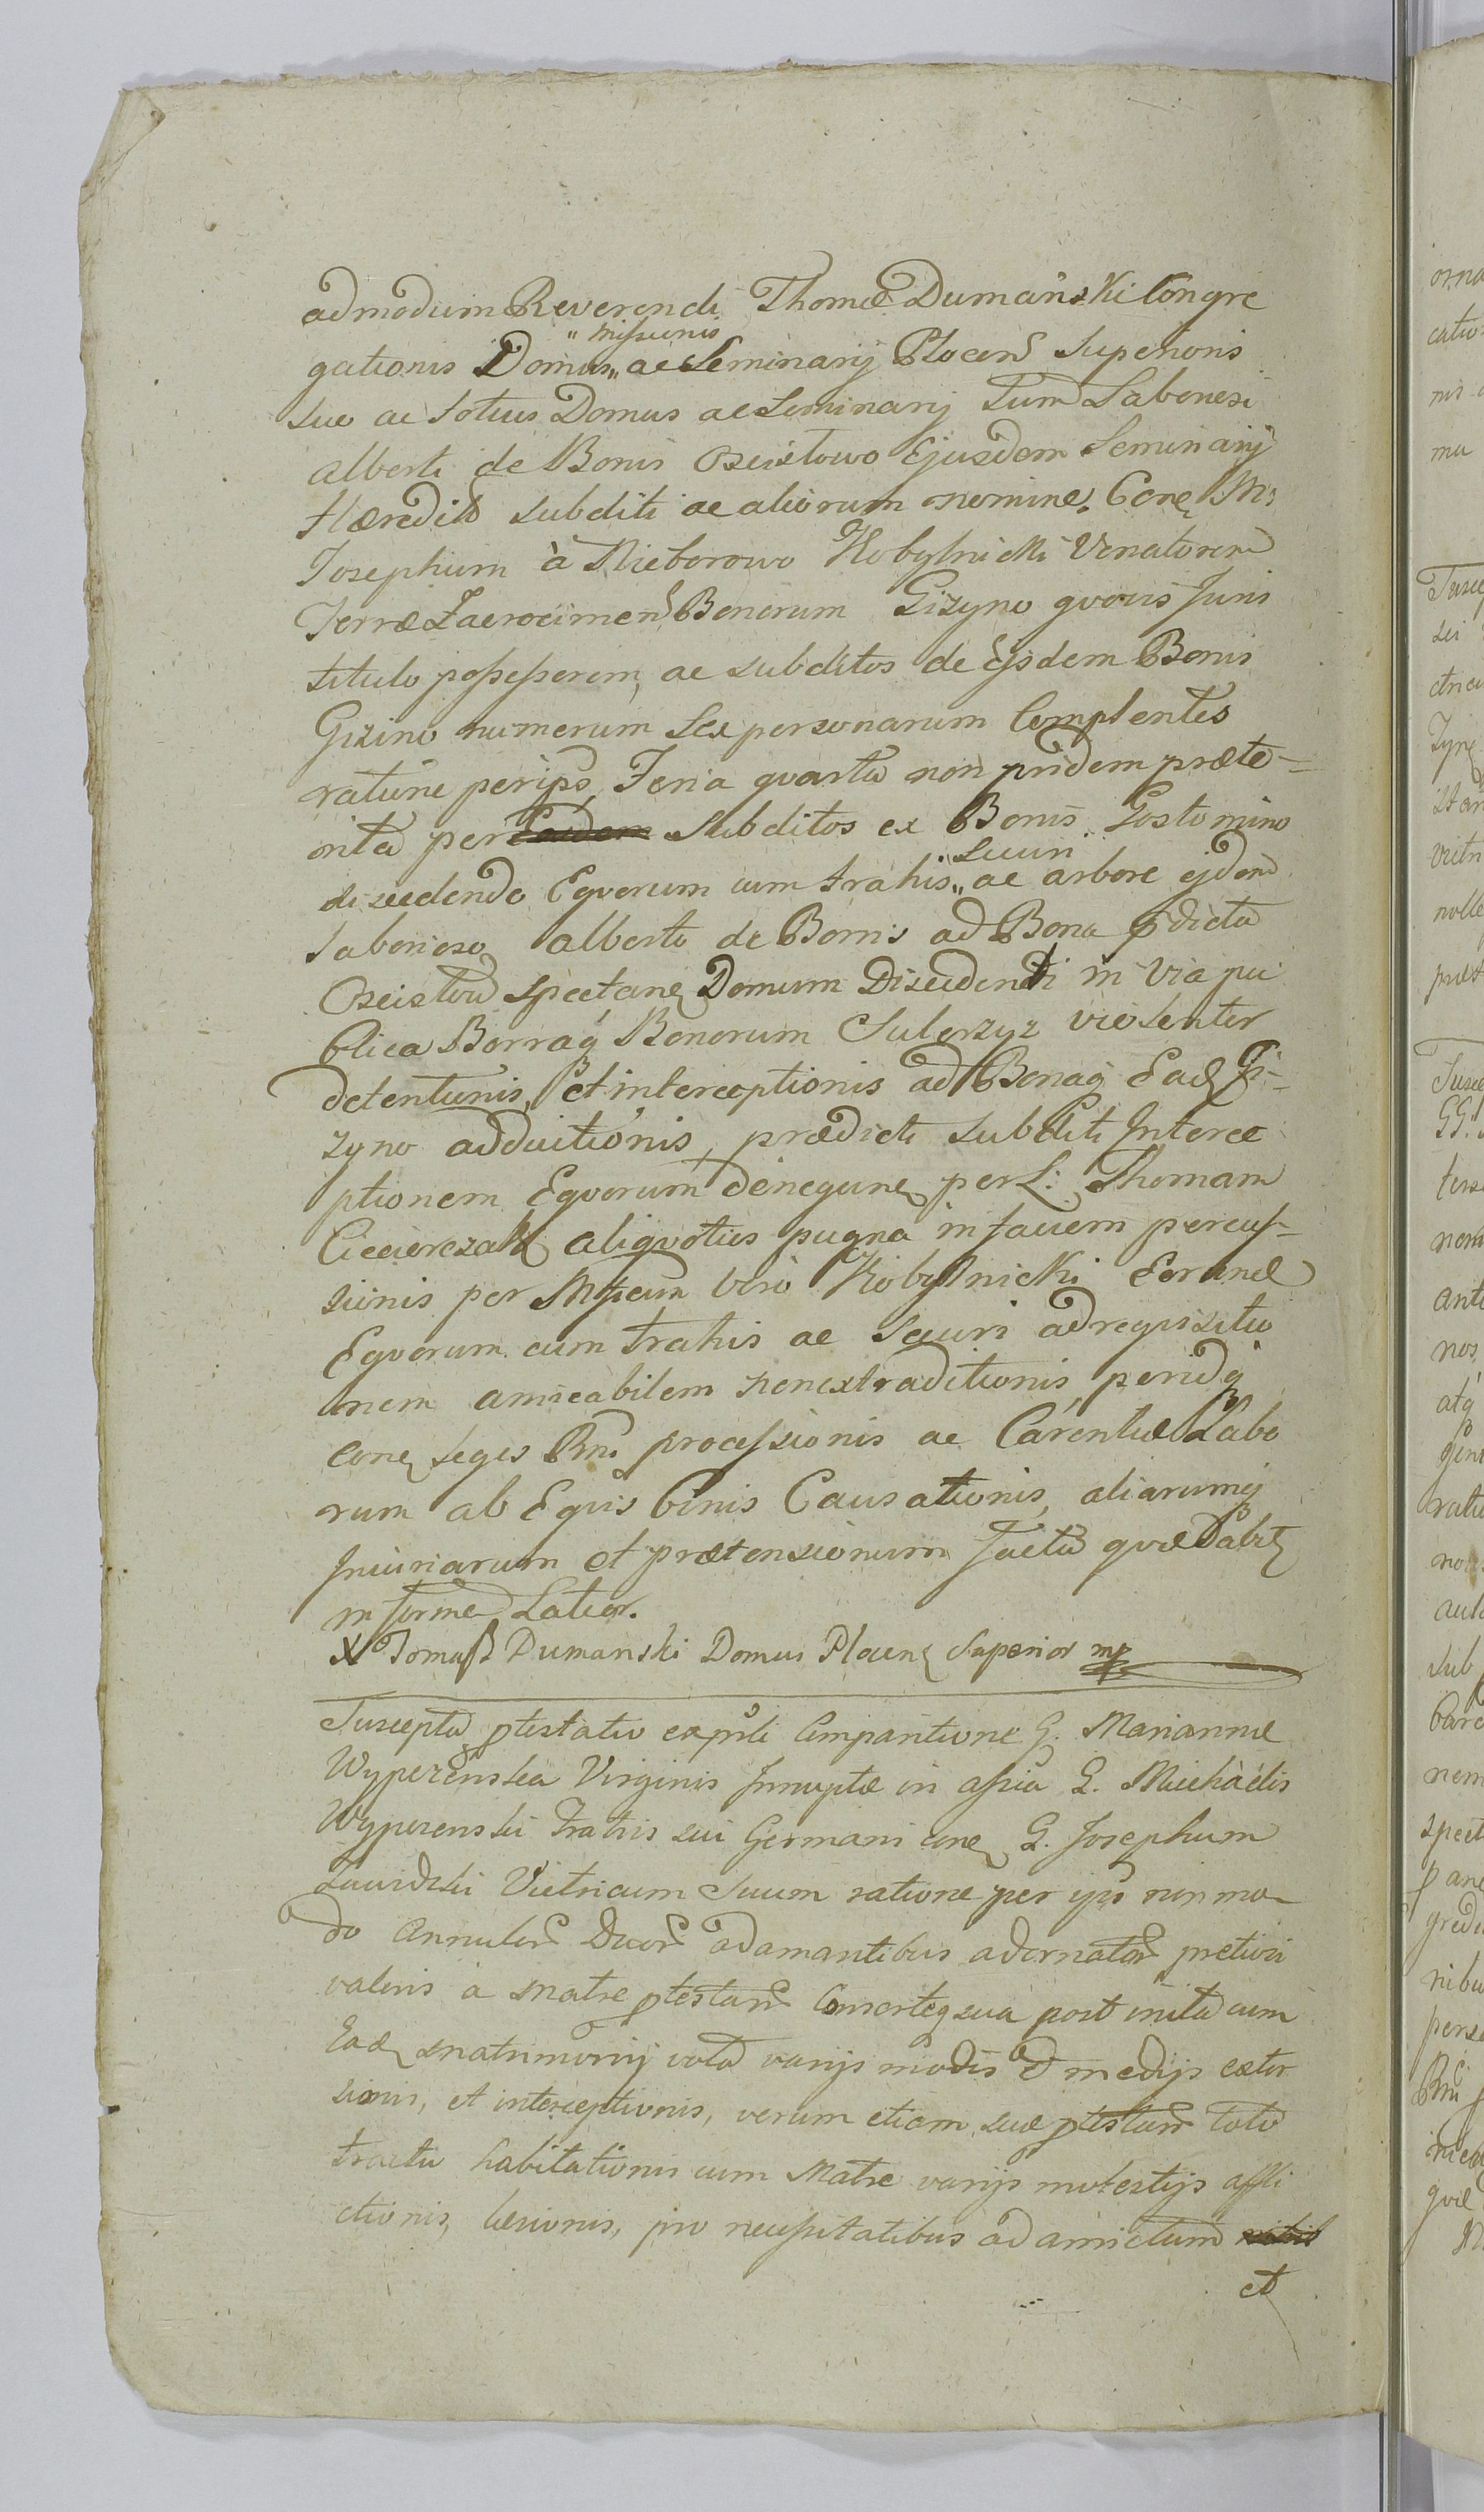 admodum Reverendi Thomæ Dumański Congre
" Missionis
gationis Domus,, ac Seminarij Plocen Superioris
suo ac totius Domus ac Seminarij tum Laboriosi
Alberti de Bonis Osiekowo Ejusdem Seminarij
Hæredit subditi ac aliorum nomine. Con M:
Josephum à Nieborowo Kobylnicki Venatorem
Terræ Zacrocimen Bonorum Gizyno quovis Juris
titulo possessorem, ac subditos de ejsdem Bonis
Gizino numerum Sex personarum Complentes
ratione per ips Feria quarta non pridem præte-
rita per Subditos ex Bonis Gostomino
discedendo Eqvorum cum trahis,, ac arbore ejdem
,, Securi
Laborioso Alberto de Bonis ad Bona pdicta
spectan Domum Discedenti in Via pu
blica Borraq Bonorum Sulerzyz violenter
detentionis, et interceptionis ad Bonaq Ead Gi-
zyno adductionis, prædicti subditi Interce
ptionem Eqvorum denegan per L: Thomam
Ciecierezak aliqvoties pugna in faciem percus-
sionis per Mfcum vero Kobylnicki Eorund
Eqvorum cum trahis ac Securi ad reqvisitio
nem amicabilem nonextraditionis, peridq
con leges Rni processionis ac Carentiæ Labo
rum ab Eqvis binis Causationis, aliarumq
Injuriarum et prætensionum facta qvæ dabit
in forma Latior.
X Tomasz Dumanski Domus Plocen Superior mp
Suscepta ptestatio ex psli Comparitione G. Mariannæ
Wyperenska Virginis Innuptæ in assia G. Michaelis
Wyperenski Fratris sui Germani con G. Josephum
Zawidzki Vitricum Suum ratione per ips non mo
do Annulor Duor adamantibus adornator pretiosi
valoris à Matre ptestan Consorteq sua post inita cum
Ead Matrimonij vota varijs modis & medijs extor
sionis, et interceptionis, verum etiam suæ ptestan toto
tractu habitationis cum Matre varijs molestijs affli
ctionis, læsionis, pro necessitatibus ad amictum
et